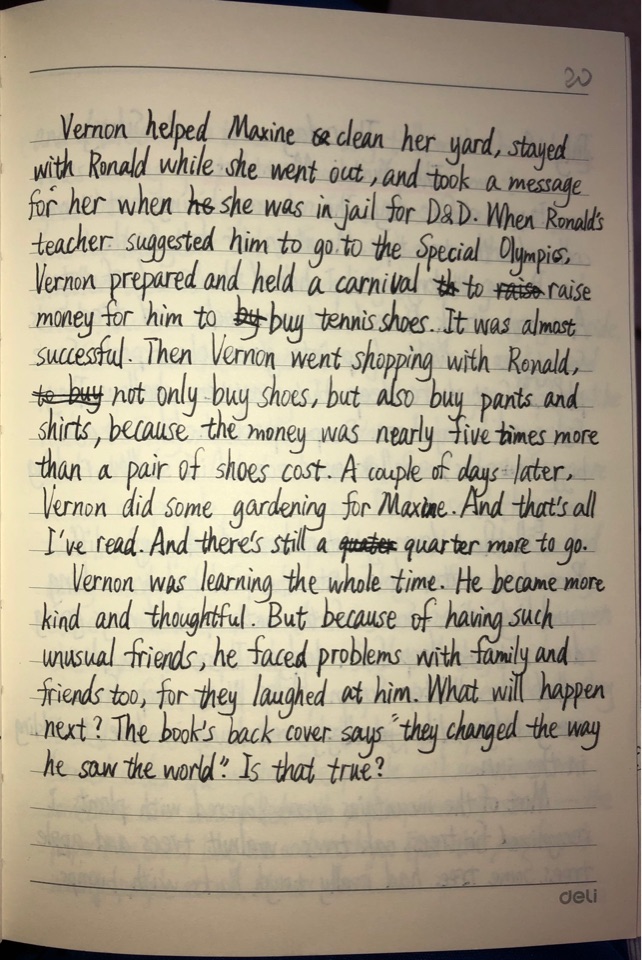 20
Vernon helped Maxine clean her yard, stayed
with Ronald while she went out, and took a message
for her when he she was in jail for D&D. When Ronald's
teacher suggested him to go to the Special Olympics,
Vernon prepared and held a carnival th to raise raise
money for him to by buy tennis shoes. It was almost
successful. Then Vernon went shopping with Ronald,
to buy not only buy shoes, but also buy pants and
shirts, because the money was nearly five times more
than a pair of shoes cost. A couple of days later,
Vernon did some gardening for Maxine. And that's all
I've read. And there's still a quater quarter more to go.
Vernon was learning the whole time. He became more
kind and thoughtful. But because of having such
unusual friends, he faced problems with family and
friends too, for they laughed at him. What will happen
next? The book's back cover says "they changed the way
he saw the world". Is that true?
deli